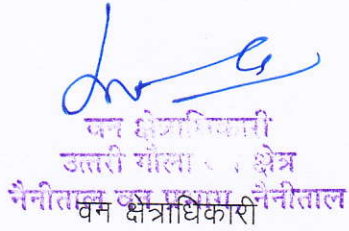 वन क्षेत्राधिकारी
उत्तरी गौला क्षेत्र
नैनीताल वन प्रभाग, नैनीताल
वन क्षेत्राधिकारी